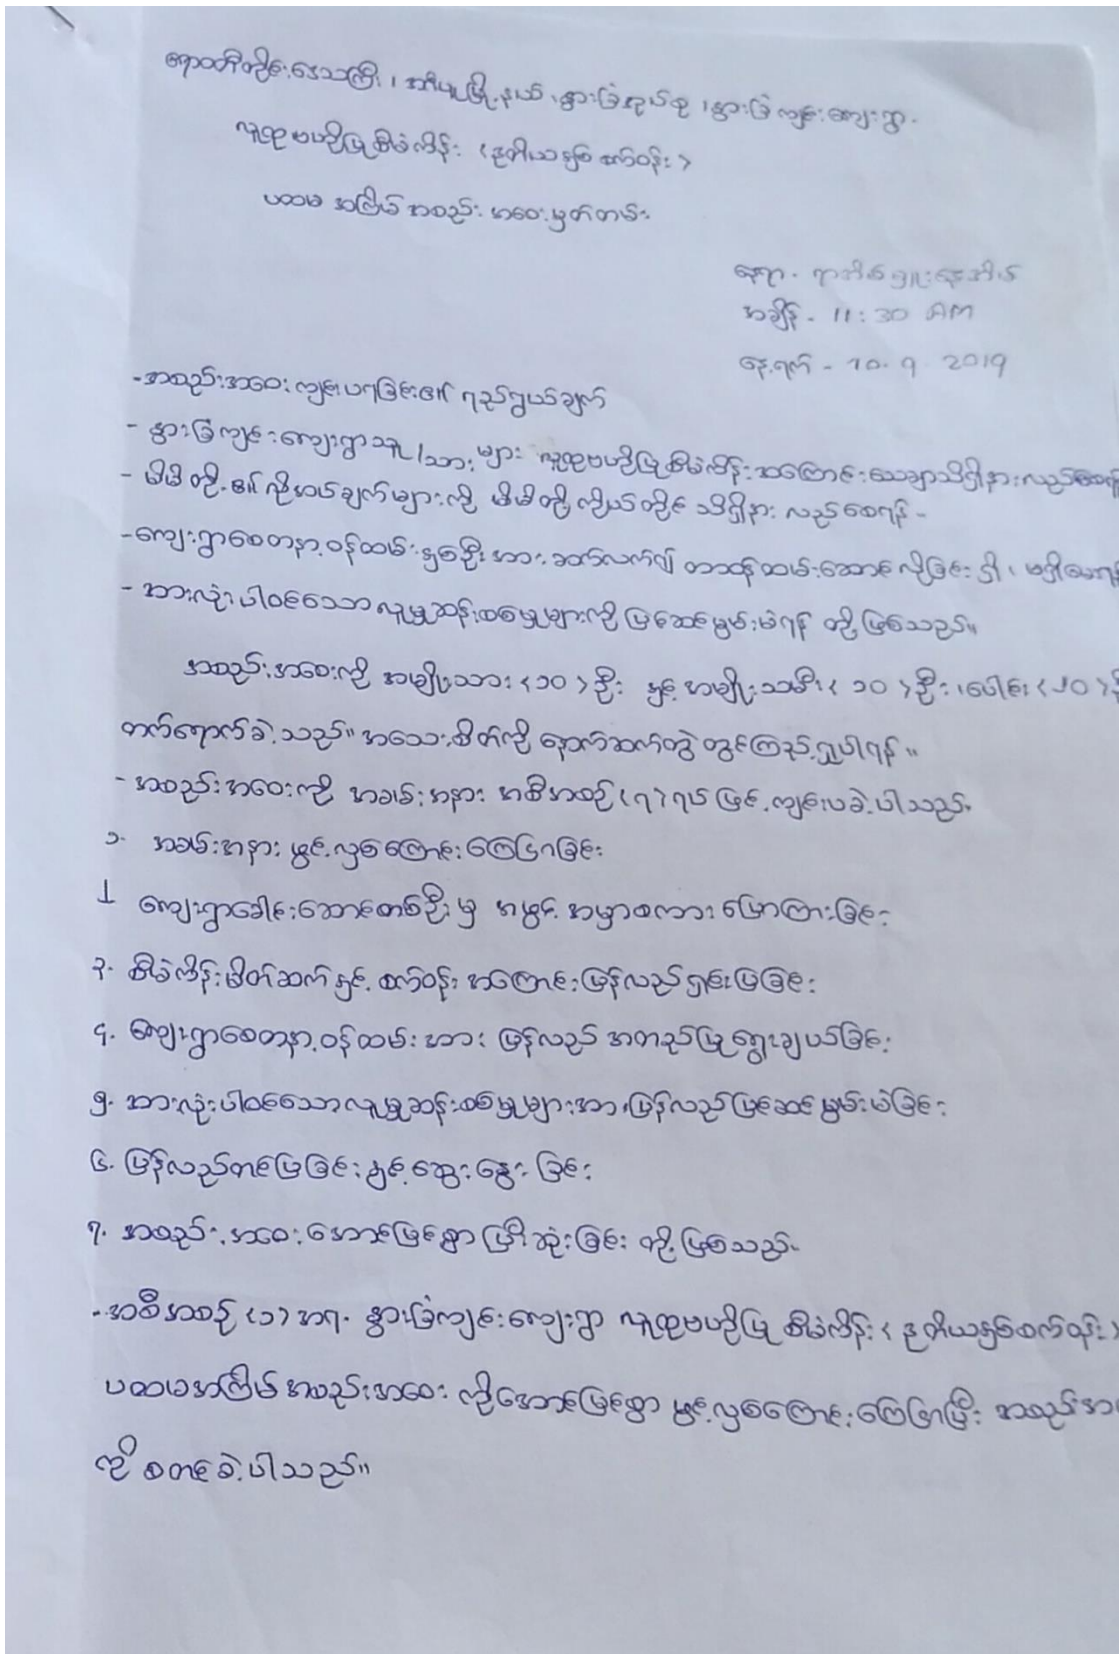 ဧရာဝတီတိုင်းဒေသကြီး၊ အိမ်မဲမြို့နယ်၊ နွားခြံအုပ်စု၊ နွားခြံကျင်းကျေးရွာ.
လူထုဗဟိုပြုစီမံကိန်း (ဒုတိယနှစ်စက်ဝန်း)
ပထမ အကြိမ် အစည်း အဝေး မှတ်တမ်း
နေရာ -
အချိန် - 11:30 AM
နေ့ရက် - 10.9.2019
-အစည်းအဝေး ကျင်းပရခြင်း၏ ရည်ရွယ်ချက်
- နွားခြံကျင်းကျေးရွာသူ/သား များ လူထုဗဟိုပြုစီမံကိန်းအကြောင်းသေချာသိရှိနားလည်စေရန်
- မိမိတို့၏လိုအပ်ချက်များကို မိမိတို့ကိုယ်တိုင် သိရှိနားလည်စေရန် -
-ကျေးရွာစေတနာ့ဝန်ထမ်းနှစ်ဦးအား ဆက်လက်၍ တာဝန်ထမ်းဆောင်လိုခြင်း ရှိ၊ မရှိမေးရန်
- အားလုံးပါဝင်သောလူမှုဆန်းစစ်မှုများကို ပြင်ဆင်မွမ်းမံရန် တို့ဖြစ်သည်။
အစည်းအဝေးကို အမျိုးသား (၁၀) ဦး နှင့် အမျိုးသမီး (၁၀) ဦး၊ ပေါင်း (၂၀) ဦး
တက်ရောက်ခဲ့သည်။ အသေးစိတ်ကို နောက်ဆက်တွဲတွင်ကြည့်ရှုပါရန်။
- အစည်းအဝေးကို အခမ်းအနား အစီအစဉ် (၇) ရပ်ဖြင့် ကျင်းပခဲ့ပါသည်.
၁. အခမ်းအနား ဖွင့်လှစ်ကြောင်းကြေငြာခြင်း
၂ ကျေးရွာခေါင်းဆောင်တစ်ဦးမှ အဖွင့် အမှာစကား ပြောကြားခြင်း
၃. စီမံကိန်းမိတ်ဆက်နှင့် စက်ဝန်း အကြောင်းပြန်လည်ရှင်းပြခြင်း
၄. ကျေးရွာစေတနာ့ဝန်ထမ်းအား ပြန်လည် အတည်ပြုရွေးချယ်ခြင်း
၅. အားလုံးပါဝင်သောလူမှုဆန်းစစ်မှုများအားပြန်လည်ပြင်ဆင်မွမ်းမံခြင်း
၆. ပြန်လည်တင်ပြခြင်းနှင့်ဆွေးနွေးခြင်း
၇. အစည်းအဝေးအောင်မြင်စွာပြီးဆုံးခြင်း တို့ဖြစ်သည်.
-အစီအစဉ် (၁) အရ. နွားခြံကျင်းကျေးရွာ လူထုဗဟိုပြုစီမံကိန်း (ဒုတိယနှစ်စက်ဝန်း)
ပထမအကြိမ် အစည်းအဝေး ကိုအောင်မြင်စွာ ဖွင့်လှစ်ကြောင်းကြေငြာပြီး အစည်းအ
ကို စတင်ခဲ့ပါသည်။